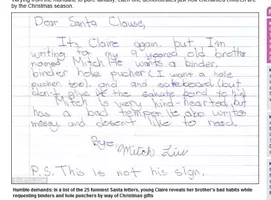 by the Christmas season.
Dear Santa Clause,
Its Claire again, but I'm
writing to my 7 yeared old brother
named Mitch. He wants a binder,
binder hole pucher (I want a hole
pucher too), and and eskateboard (but
don't give him the skate bord to
Mitch is very kind-hearted, but
has a bad temper. He also writes
messy and doesent like to read.
Bye
Mitch Liu
P.S. This is not his sign.
Humble demands: In a list of the 25 funniest Santa letters, young Claire reveals her brother's bad habits while
requesting binders and hole punchers by way of Christmas gifts